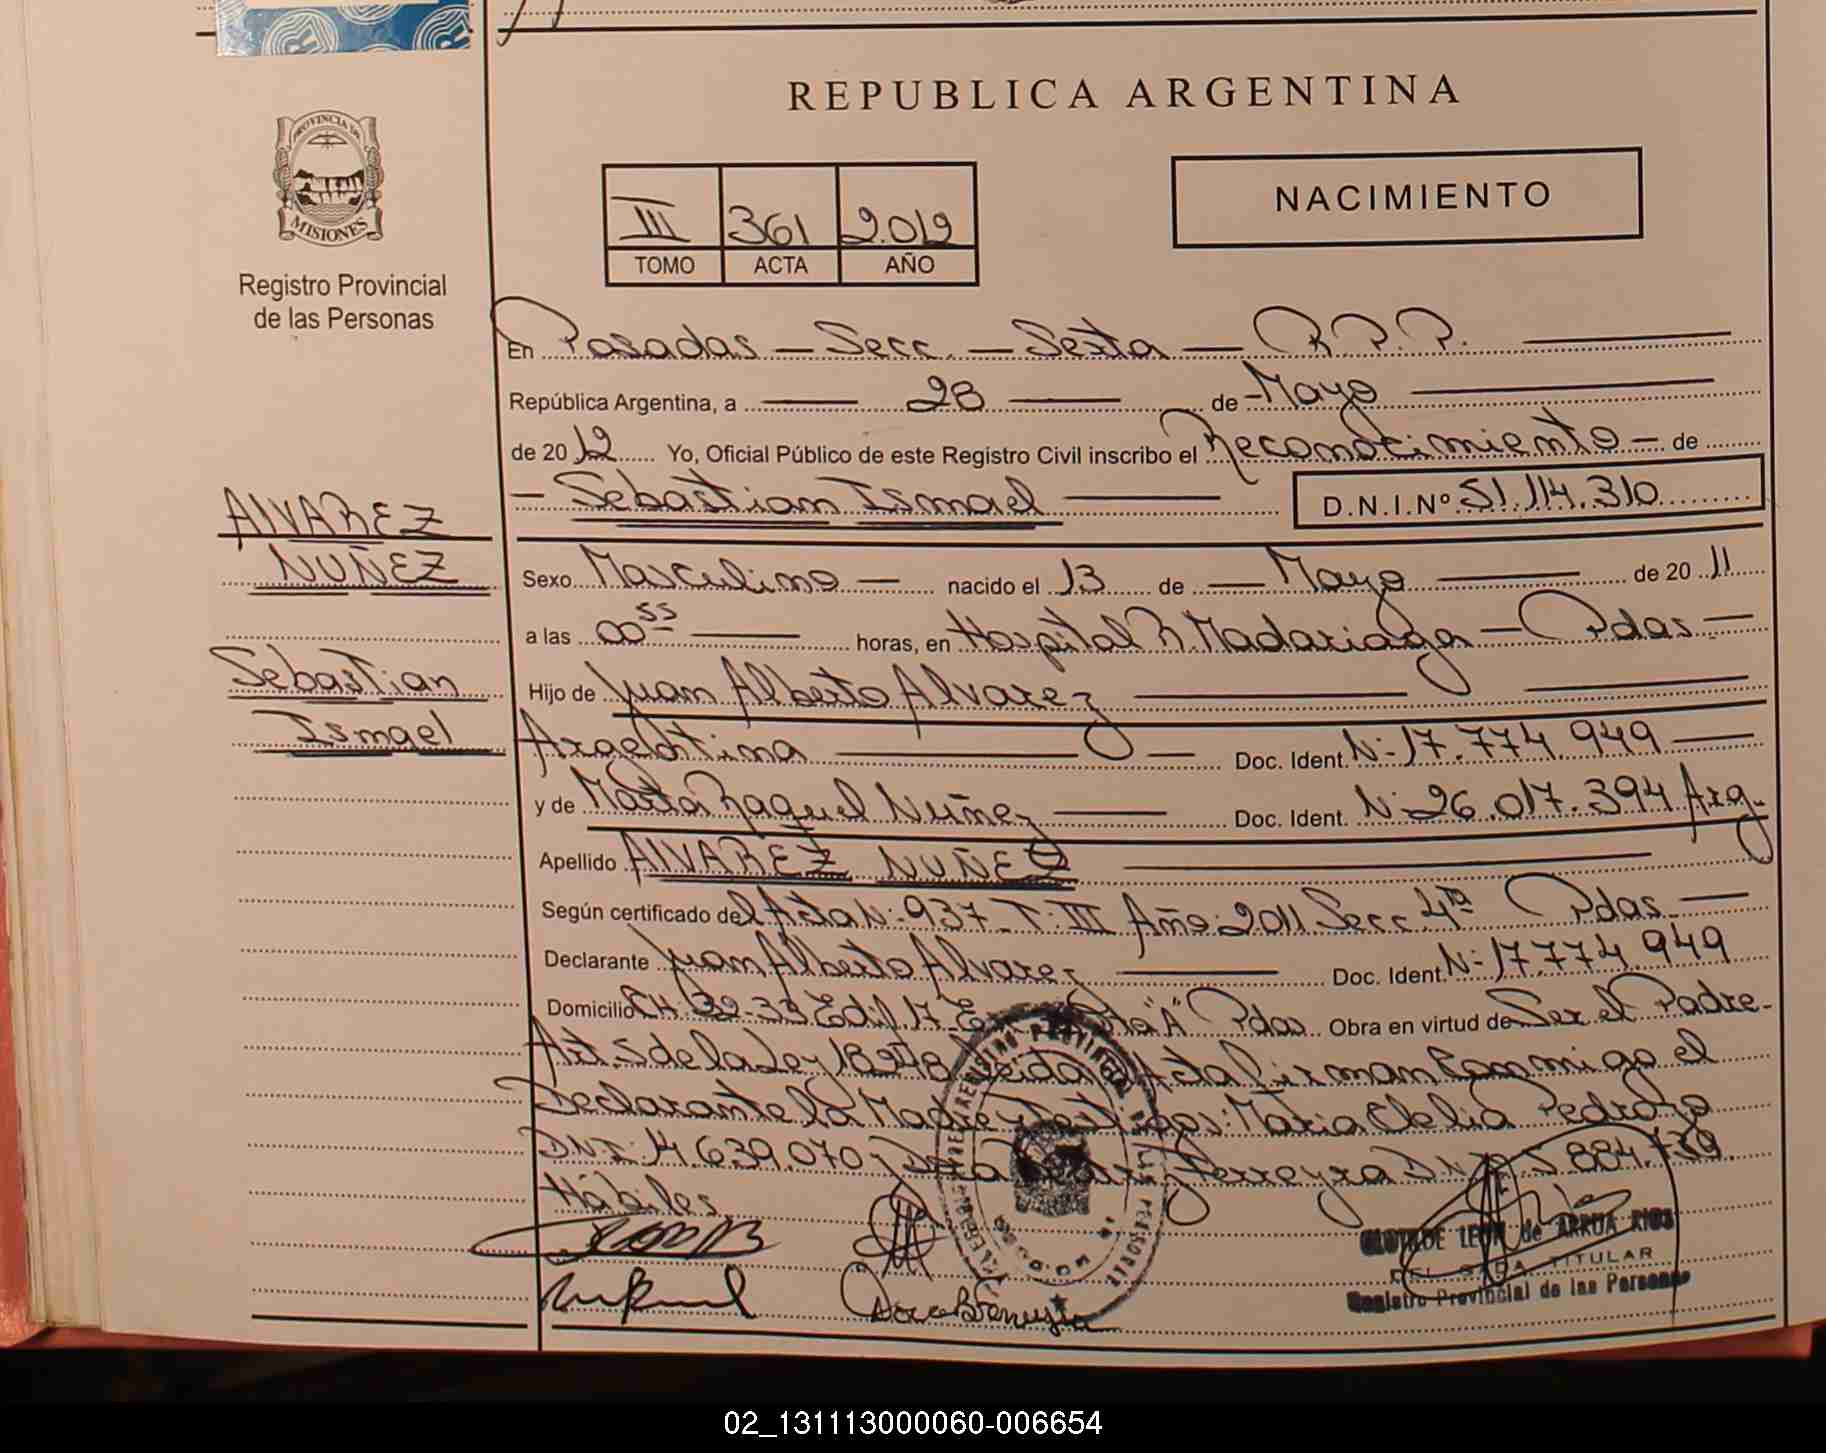 REPUBLICA ARGENTINA
PROVINCIA DE
MISIONES
Registro Provincial
de las Personas
III 361 2.012
TOMO ACTA AÑO
NACIMIENTO
En Posadas - Secc. - Sexta - R.P.P.
República Argentina, a 28 de Mayo
de 2012 Yo, Oficial Público de este Registro Civil inscribo el Reconocimiento - de
- Sebastian Ismael D.N.I.Nº 51.114.310
ALVAREZ
NUÑEZ
Sebastian
Ismael
Sexo Masculino - nacido el 13 de Mayo de 2011
a las 00 55 horas, en Hospital R. Madariaga - Pdas -
Hijo de Juan Alberto Alvarez
Argentina - Doc. Ident. N: 17.774.949
y de Marta Raquel Nuñez Doc. Ident. N: 26.017.394 Arg.
Apellido ALVAREZ NUÑEZ
Según certificado del Acta N: 937 T: III Año: 2011 Secc. 4ta Pdas.
Declarante Juan Alberto Alvarez Doc. Ident. N: 17.774.949
Domicilio CH: 32-33 Edif. 17 "A" Pdas Obra en virtud de Ser el Padre-
Art. 5 de la Ley 18248 Leida el Acta firman Conmigo el
Declarante la Madre y Testigos: Maria Clelia Pedrozo
D.N.I: 14.639.070 y Ferreyra D.N.I. 5.884.739
Hábiles
REGISTRO PROVINCIAL DE LAS PERSONAS
CLOTILDE LEON de ARRUA RIOS
DELEGADA TITULAR
Registro Provincial de las Personas
02_131113000060-006654